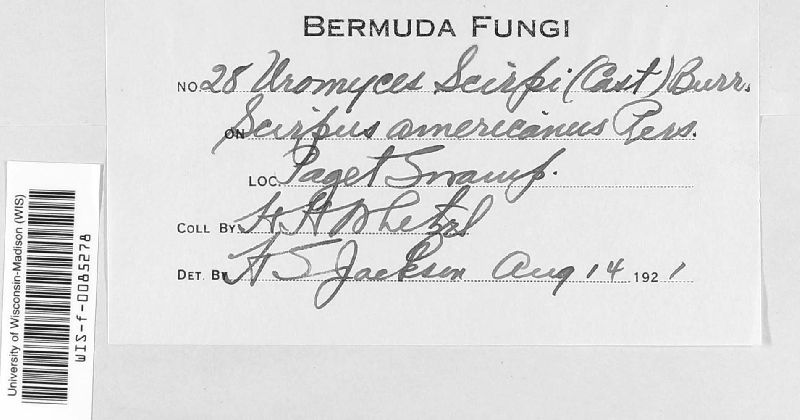 BERMUDA FUNGI
NO. 28 Uromyces Scirpi (Cast) Burr.
ON Scirpus americanus Pers.
LOC. Paget Swamp.
COLL BY. H H Whetzel
DET. BY H S Jackson Aug 14 1921
University of Wisconsin-Madison (WIS)
WIS-f-0085278